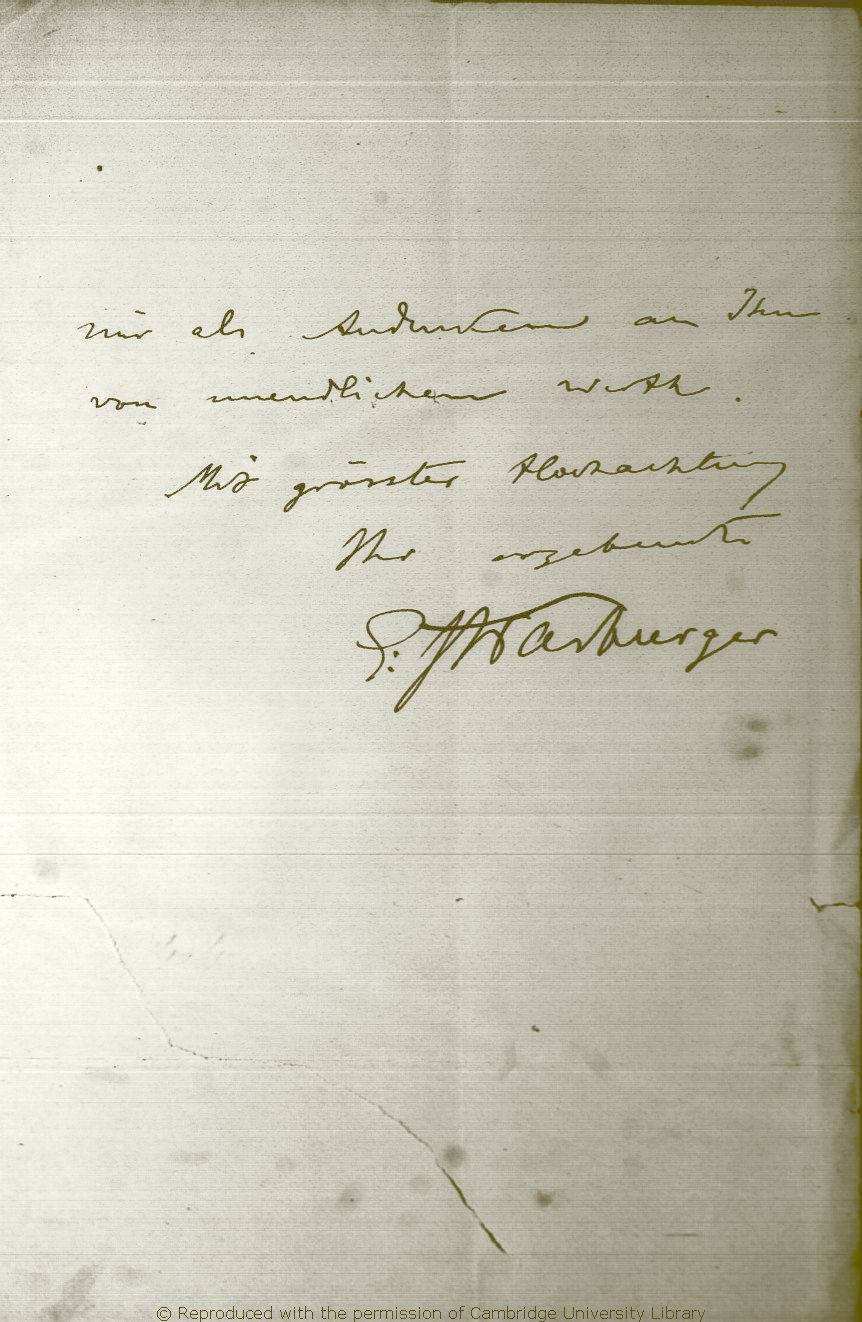 mir als Andenken an Ihn
von unendlichem Werth.
Mit grösster Hochachtung
Ihr ergebenster
Warburger
© Reproduced with the permission of Cambridge University Library